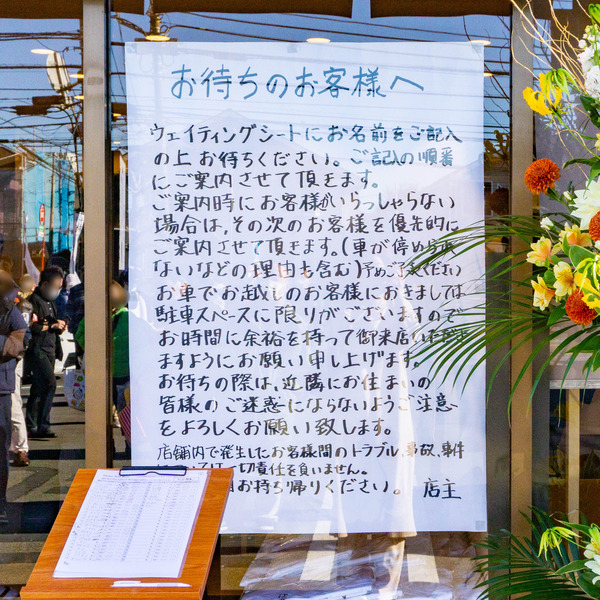 お待ちのお客様へ
ウェイティングシートにお名前をご記入
の上 お待ちください。ご記入の順番
にご案内させて頂きます。
ご案内時にお客様がいらっしゃらない
場合は、その次のお客様を優先的に
ご案内させて頂きます。(車が停められ
ないなどの理由も含む)予めご了承ください
お車でお越しのお客様におきましては
駐車スペースに限りがございますので
お時間に余裕を持って御来店いただき
ますようにお願い申し上げます。
お待ちの際は、近隣にお住まいの
皆様のご迷惑にならないようご注意
をよろしくお願い致します。
店舗内で発生したお客様間のトラブル、事故、事件
については一切責任を負いません。
お持ち帰りください。 店主